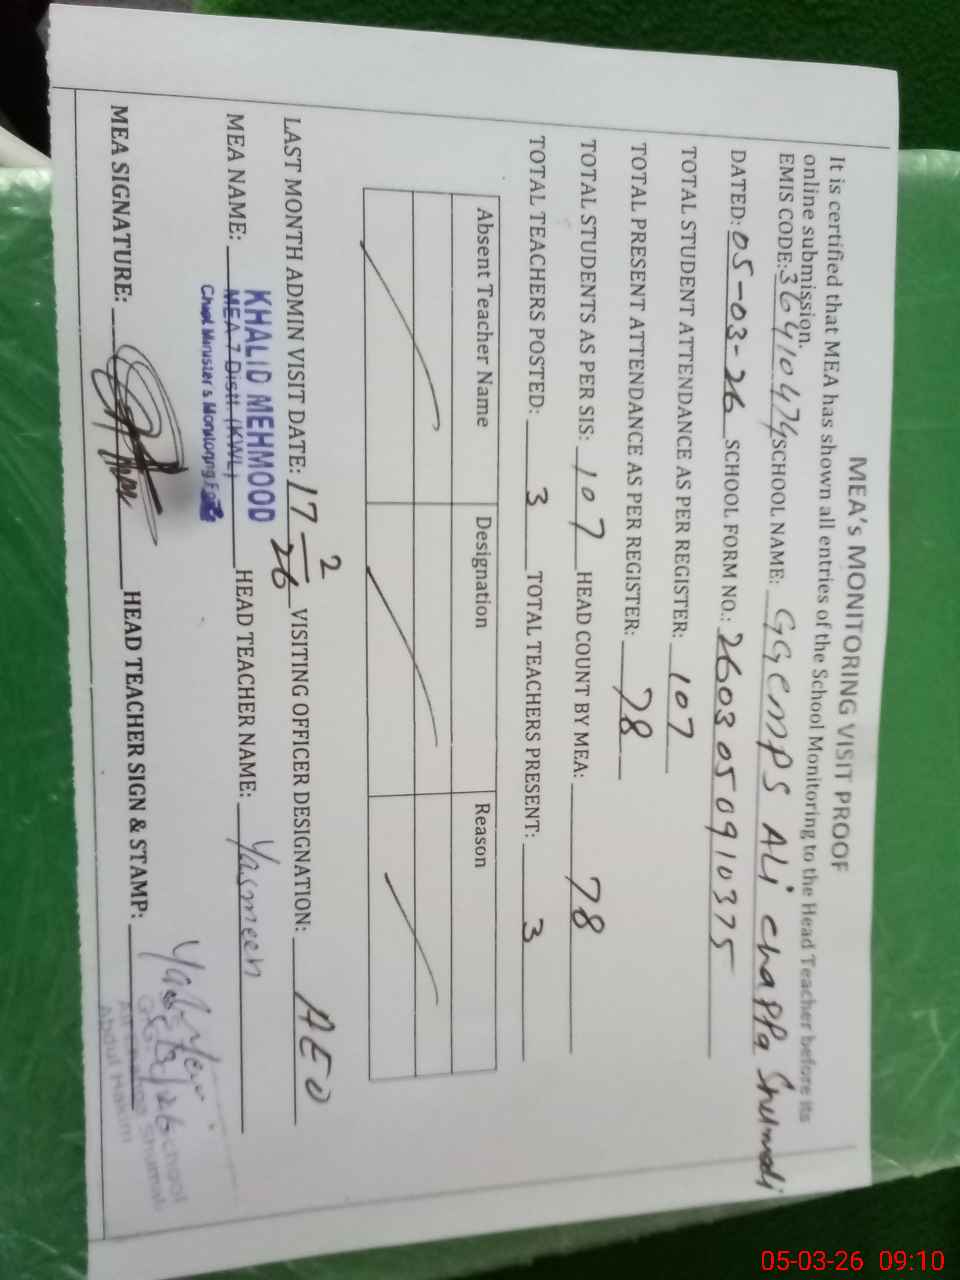 MEA's MONITORING VISIT PROOF
It is certified that MEA has shown all entries of the School Monitoring to the Head Teacher before its
online submission.
EMIS CODE: 36410474 SCHOOL NAME: GGCMPS ALi chappa Shumali
DATED: 05-03-26 SCHOOL FORM NO.: 2603050910375
TOTAL STUDENT ATTENDANCE AS PER REGISTER: 107
TOTAL PRESENT ATTENDANCE AS PER REGISTER: 78
TOTAL STUDENTS AS PER SIS: 107 HEAD COUNT BY MEA: 78
TOTAL TEACHERS POSTED: 3 TOTAL TEACHERS PRESENT: 3
Absent Teacher Name Designation Reason
LAST MONTH ADMIN VISIT DATE: 17-2-26 VISITING OFFICER DESIGNATION: AEO
MEA NAME: KHALID MEHMOOD HEAD TEACHER NAME: Yasmeen
MEA 7 Distt (KWL)
Chief Minister's Monitoring Force
MEA SIGNATURE: HEAD TEACHER SIGN & STAMP: Yasmeen
School
Shumali
Abdul Hakim
05-03-26 09:10